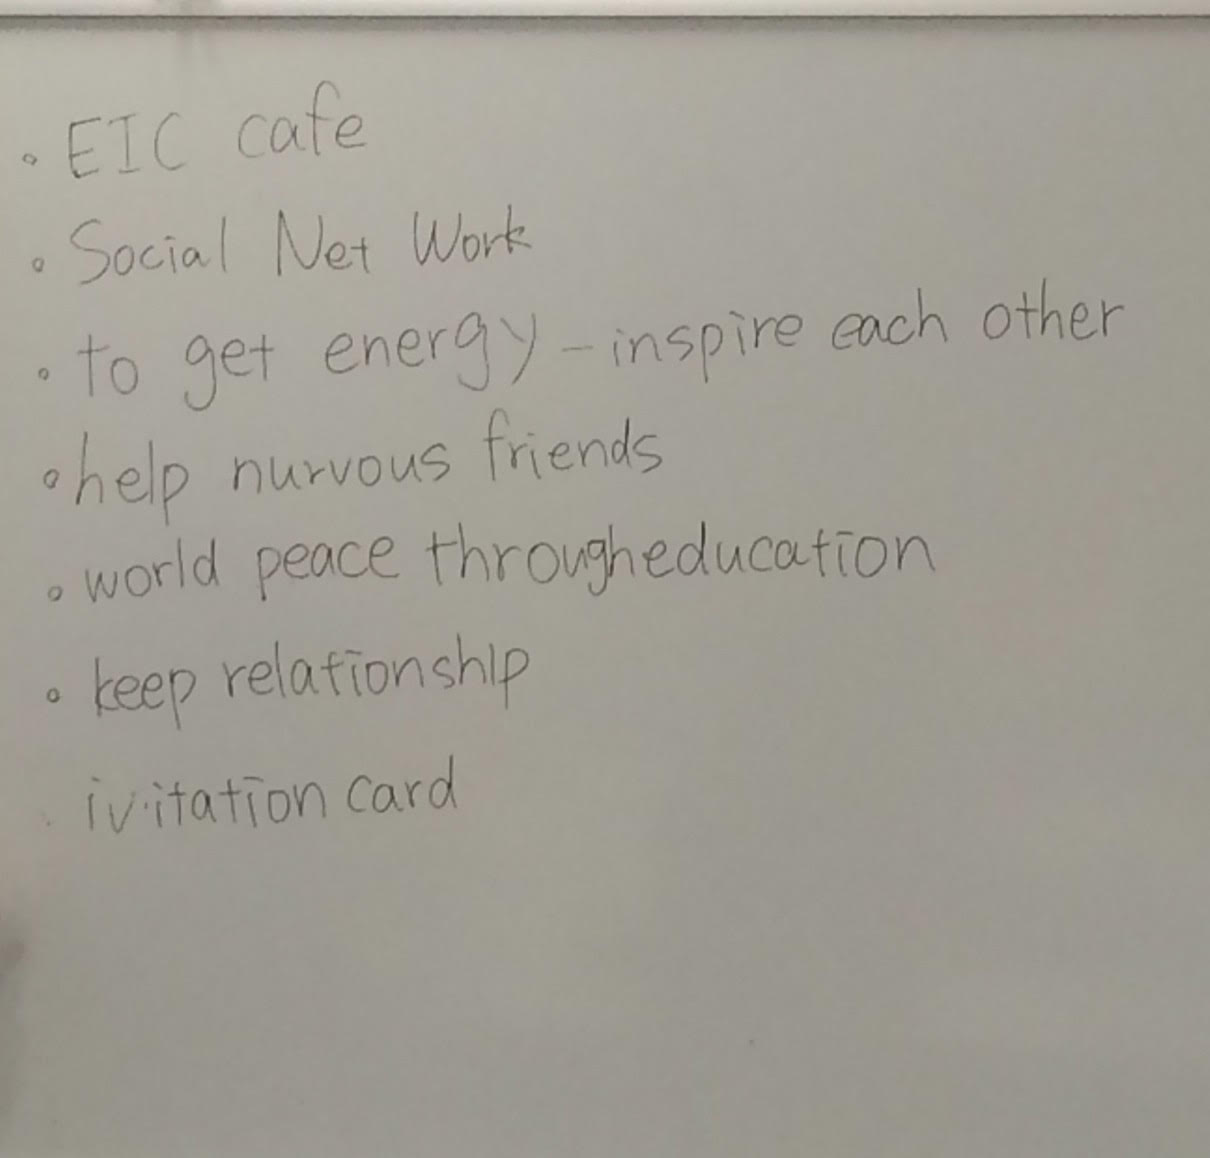 • EIC cafe
• Social Net Work
• to get energy - inspire each other
• help nurvous friends
• world peace througheducation
• keep relationship
• ivitation card